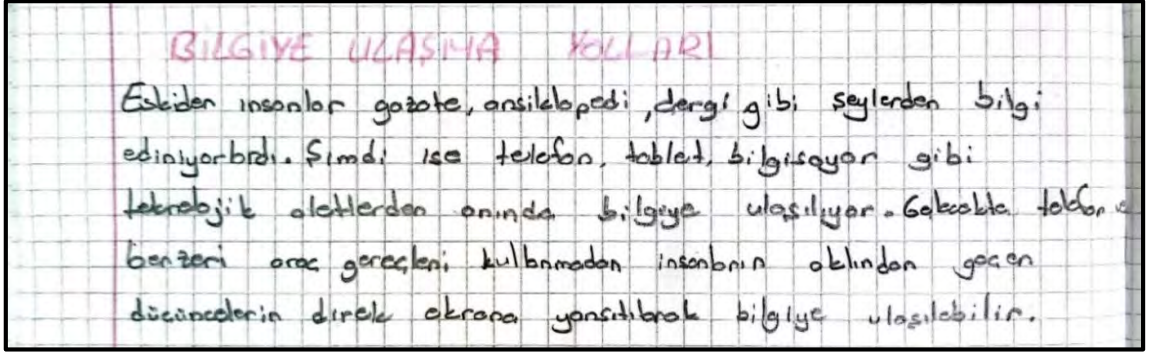 BİLGİYE ULAŞMA YOLLARI
Eskiden insanlar gazete, ansiklopedi, dergi gibi şeylerden bilgi
ediniyorlardı. Şimdi ise telefon, tablet, bilgisayar gibi
teknolojik aletlerden anında bilgiye ulaşılıyor. Gelecekte telefon
benzeri araç gereçleri kullanmadan insanların aklından geçen
düşüncelerin direk ekrana yansıtılarak bilgiye ulaşılabilir.